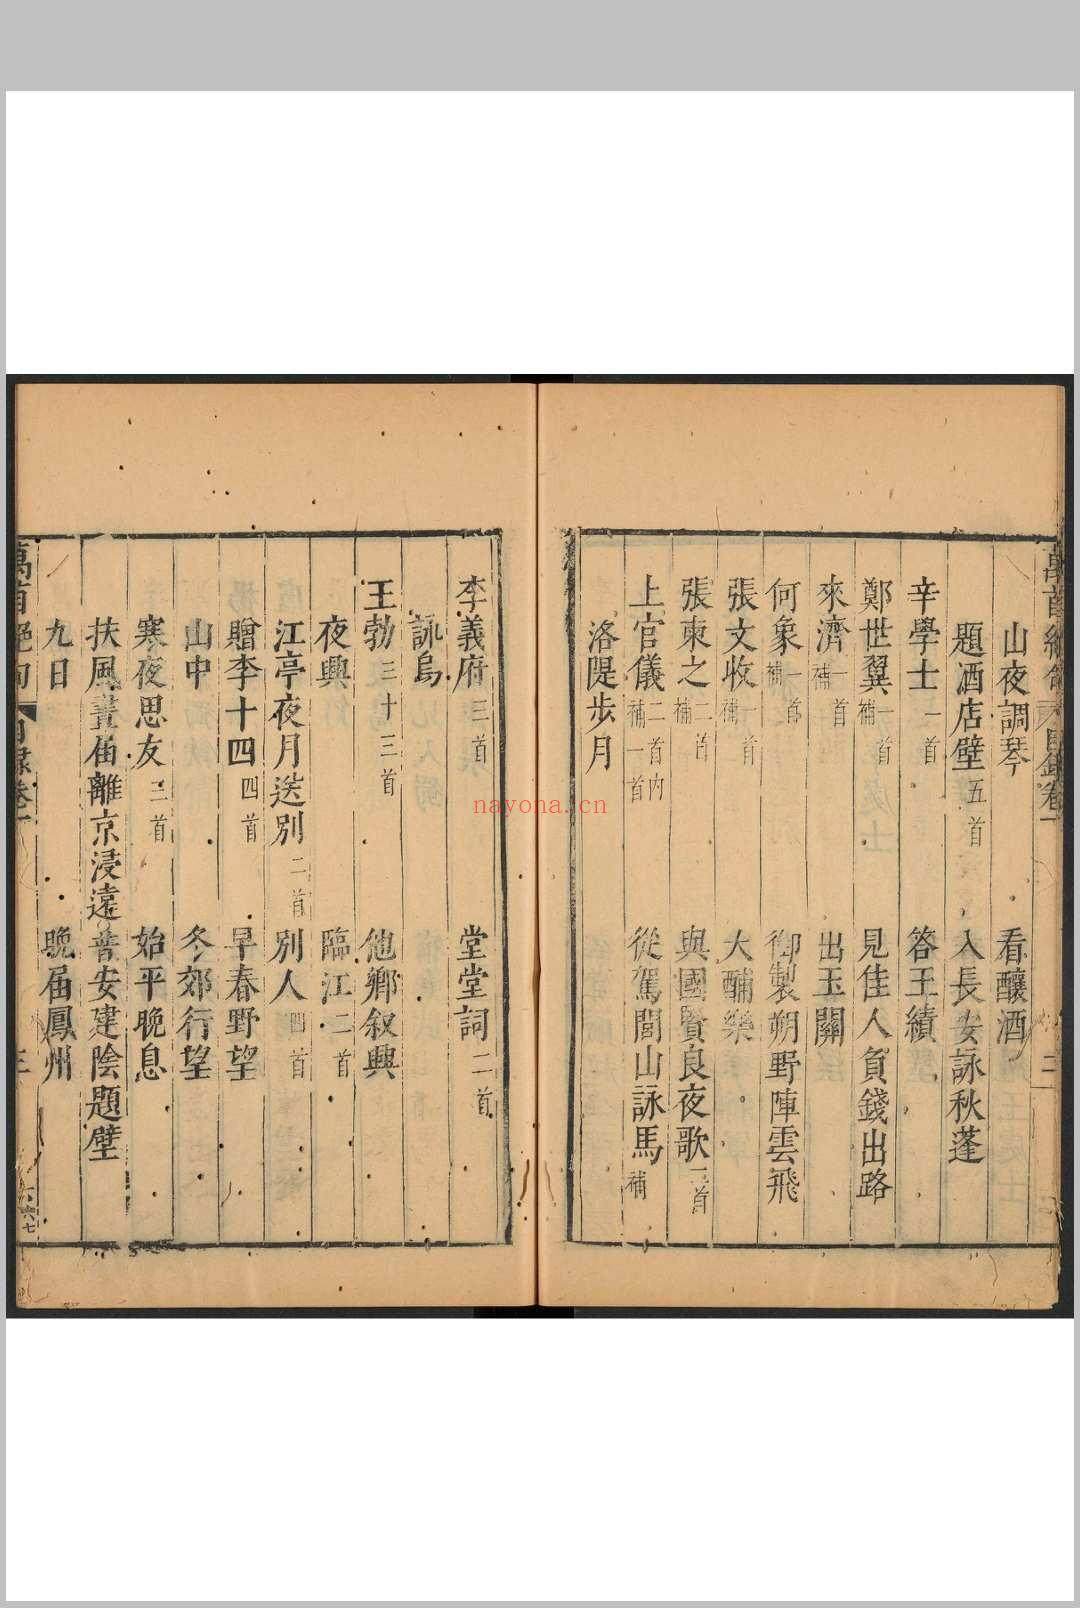 萬首絕句 目錄卷一 二
山夜調琴 看釀酒
題酒店壁五首 入長安詠秋蓬
辛學士一首 答王績
鄭世翼一首補 見佳人負錢出路
來濟一首補 出玉關
何象一首補 御製朔野陣雲飛
張文收一首補 大酺樂
張柬之二首補 與國賢良夜歌二首
上官儀二首內補一首 從駕閭山詠馬補
洛隄步月
李義府三首 堂堂詞二首
詠烏
王勃三十三首 他鄉叙興
夜興 臨江二首
江亭夜月送別二首 別人四首
贈李十四四首 早春野望
山中 冬郊行望
寒夜思友三首 始平晚息
扶風晝届離京浸遠 普安建陰題壁
九日 晚届鳳州
萬首絕句 目錄卷一 三
nayona.cn